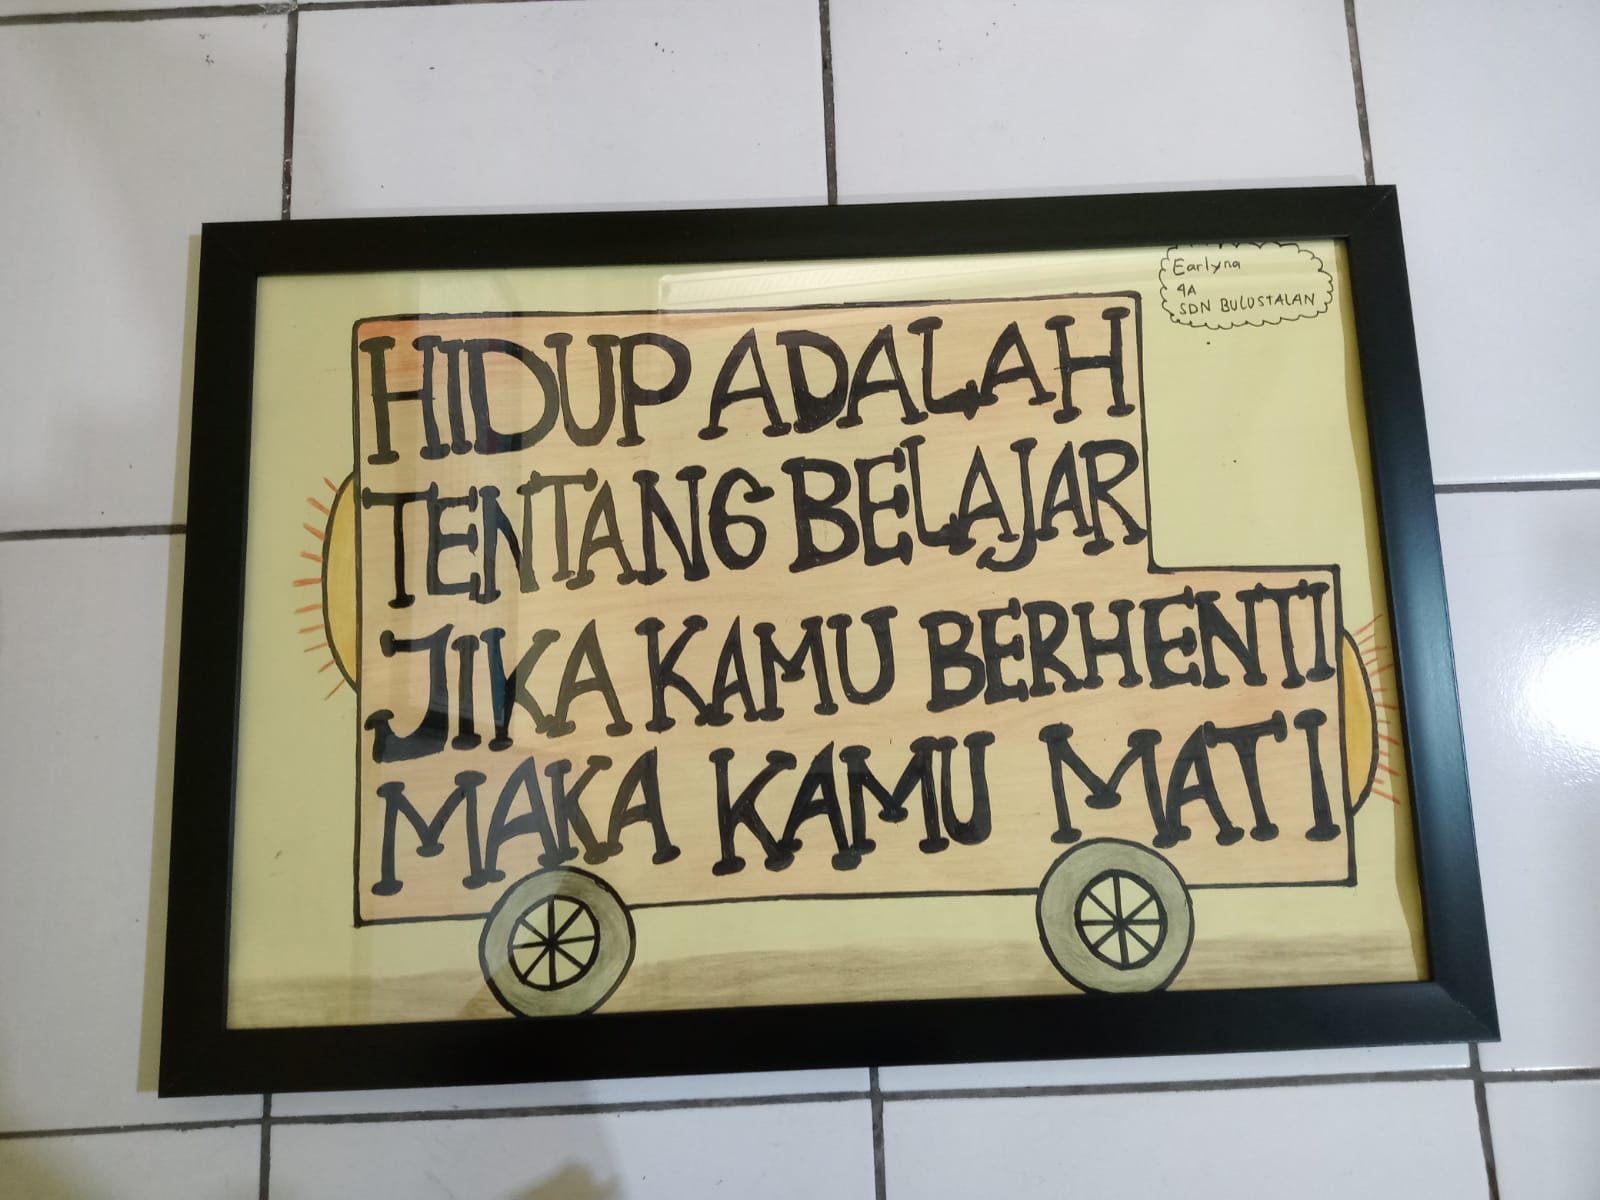 Earlyna
4A
SDN BULUSTALAN
HIDUP ADALAH
TENTANG BELAJAR
JIKA KAMU BERHENTI
MAKA KAMU MATI